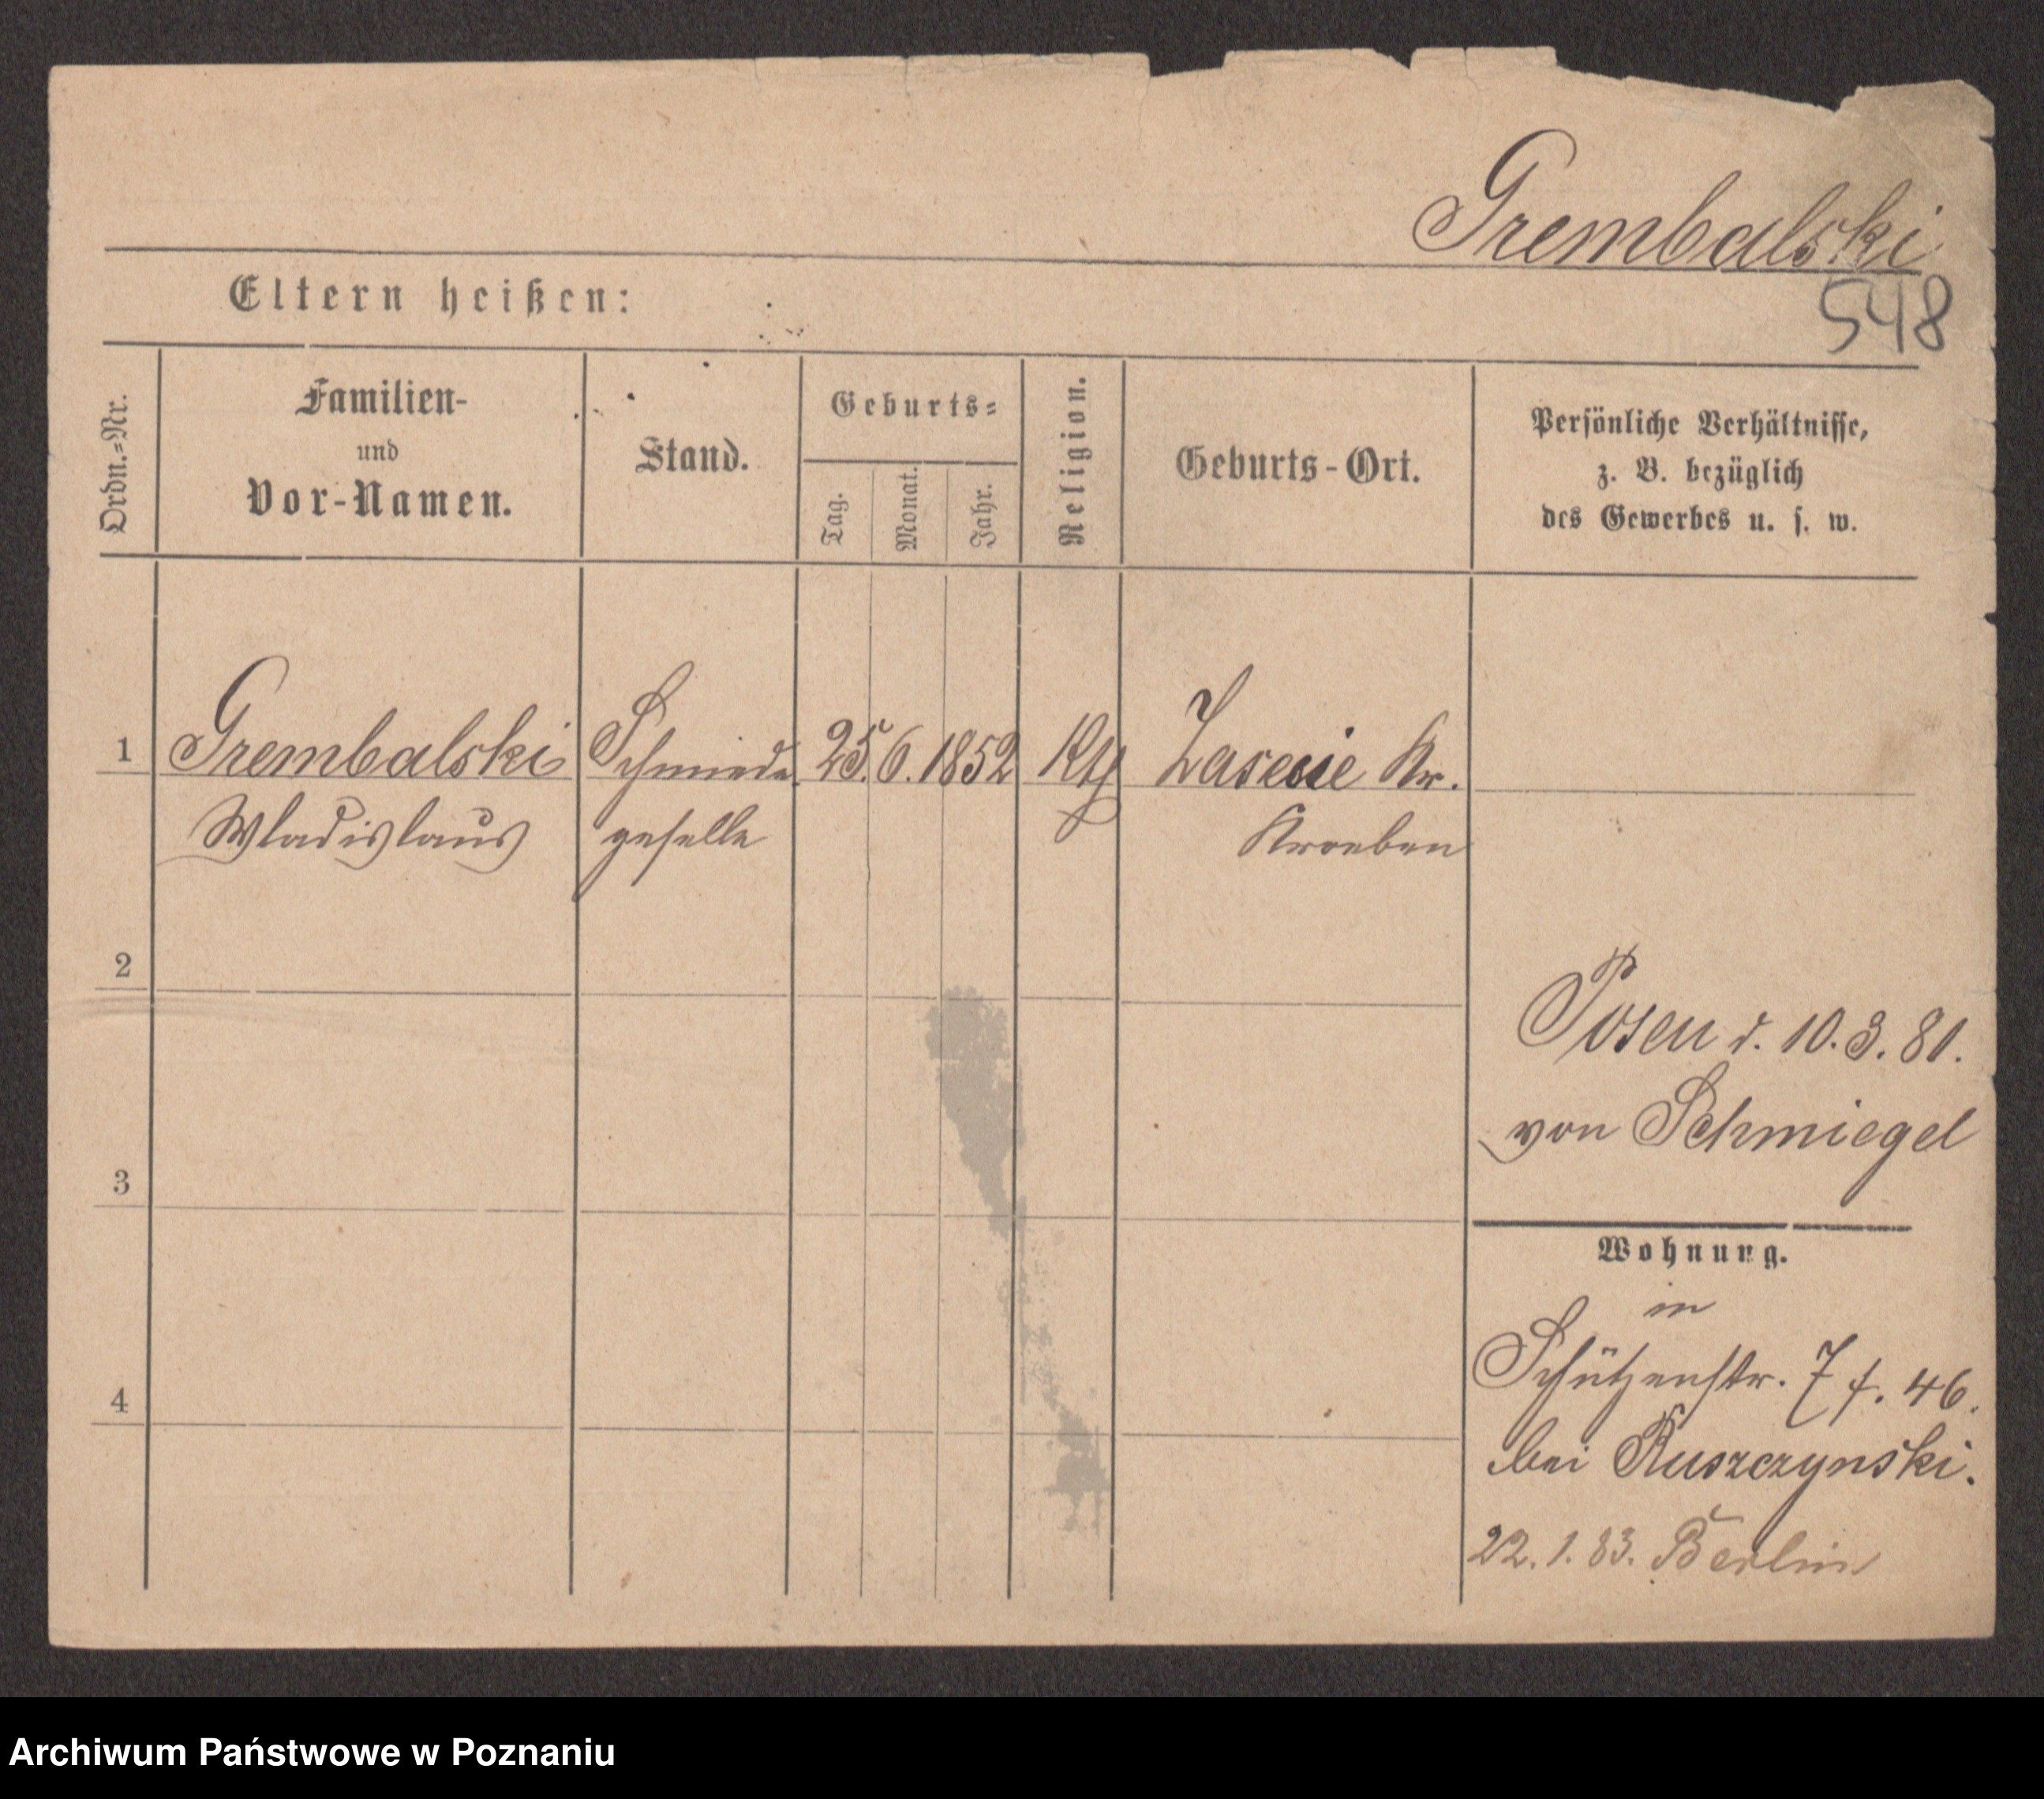 Grembalski
548
Eltern heißen:
Ordn.-Nr.
Familien-
und
Vor-Namen.
Stand.
Geburts-
Tag.
Monat.
Jahr.
Religion.
Geburts-Ort.
Persönliche Verhältnisse,
z. B. bezüglich
des Gewerbes u. s. w.
1 Grembalski Schmiede 25. 6. 1852 Kr.
Wladislaus geselle Kroeben
2
Posen d. 10. 3. 81.
von Schmiegel
3
Wohnung.
in
Schützenstr. 7 f. 46.
4
bei Ruszczynski.
22. 1. 83. Berlin
Archiwum Państwowe w Poznaniu